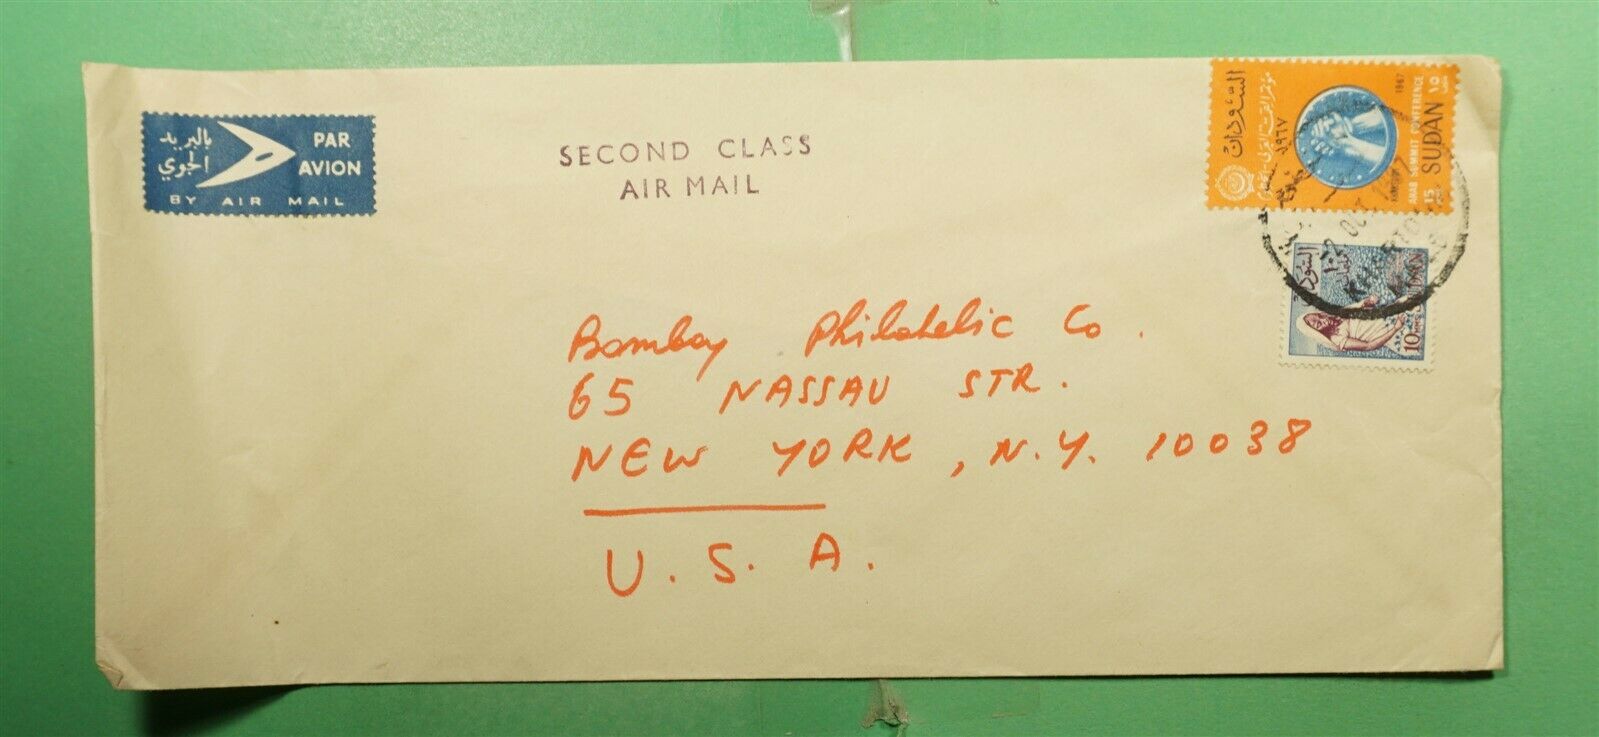 بالبريد
الجوي
PAR
AVION
BY AIR MAIL
SECOND CLASS
AIR MAIL
السودان
١٩٦٧
1967
ARAB SUMMIT CONFERENCE
15
SUDAN
2 OCT
السودان
10
SUDAN
Bombay Philatelic Co.
65 NASSAU STR.
NEW YORK, N.Y. 10038
U.S.A.